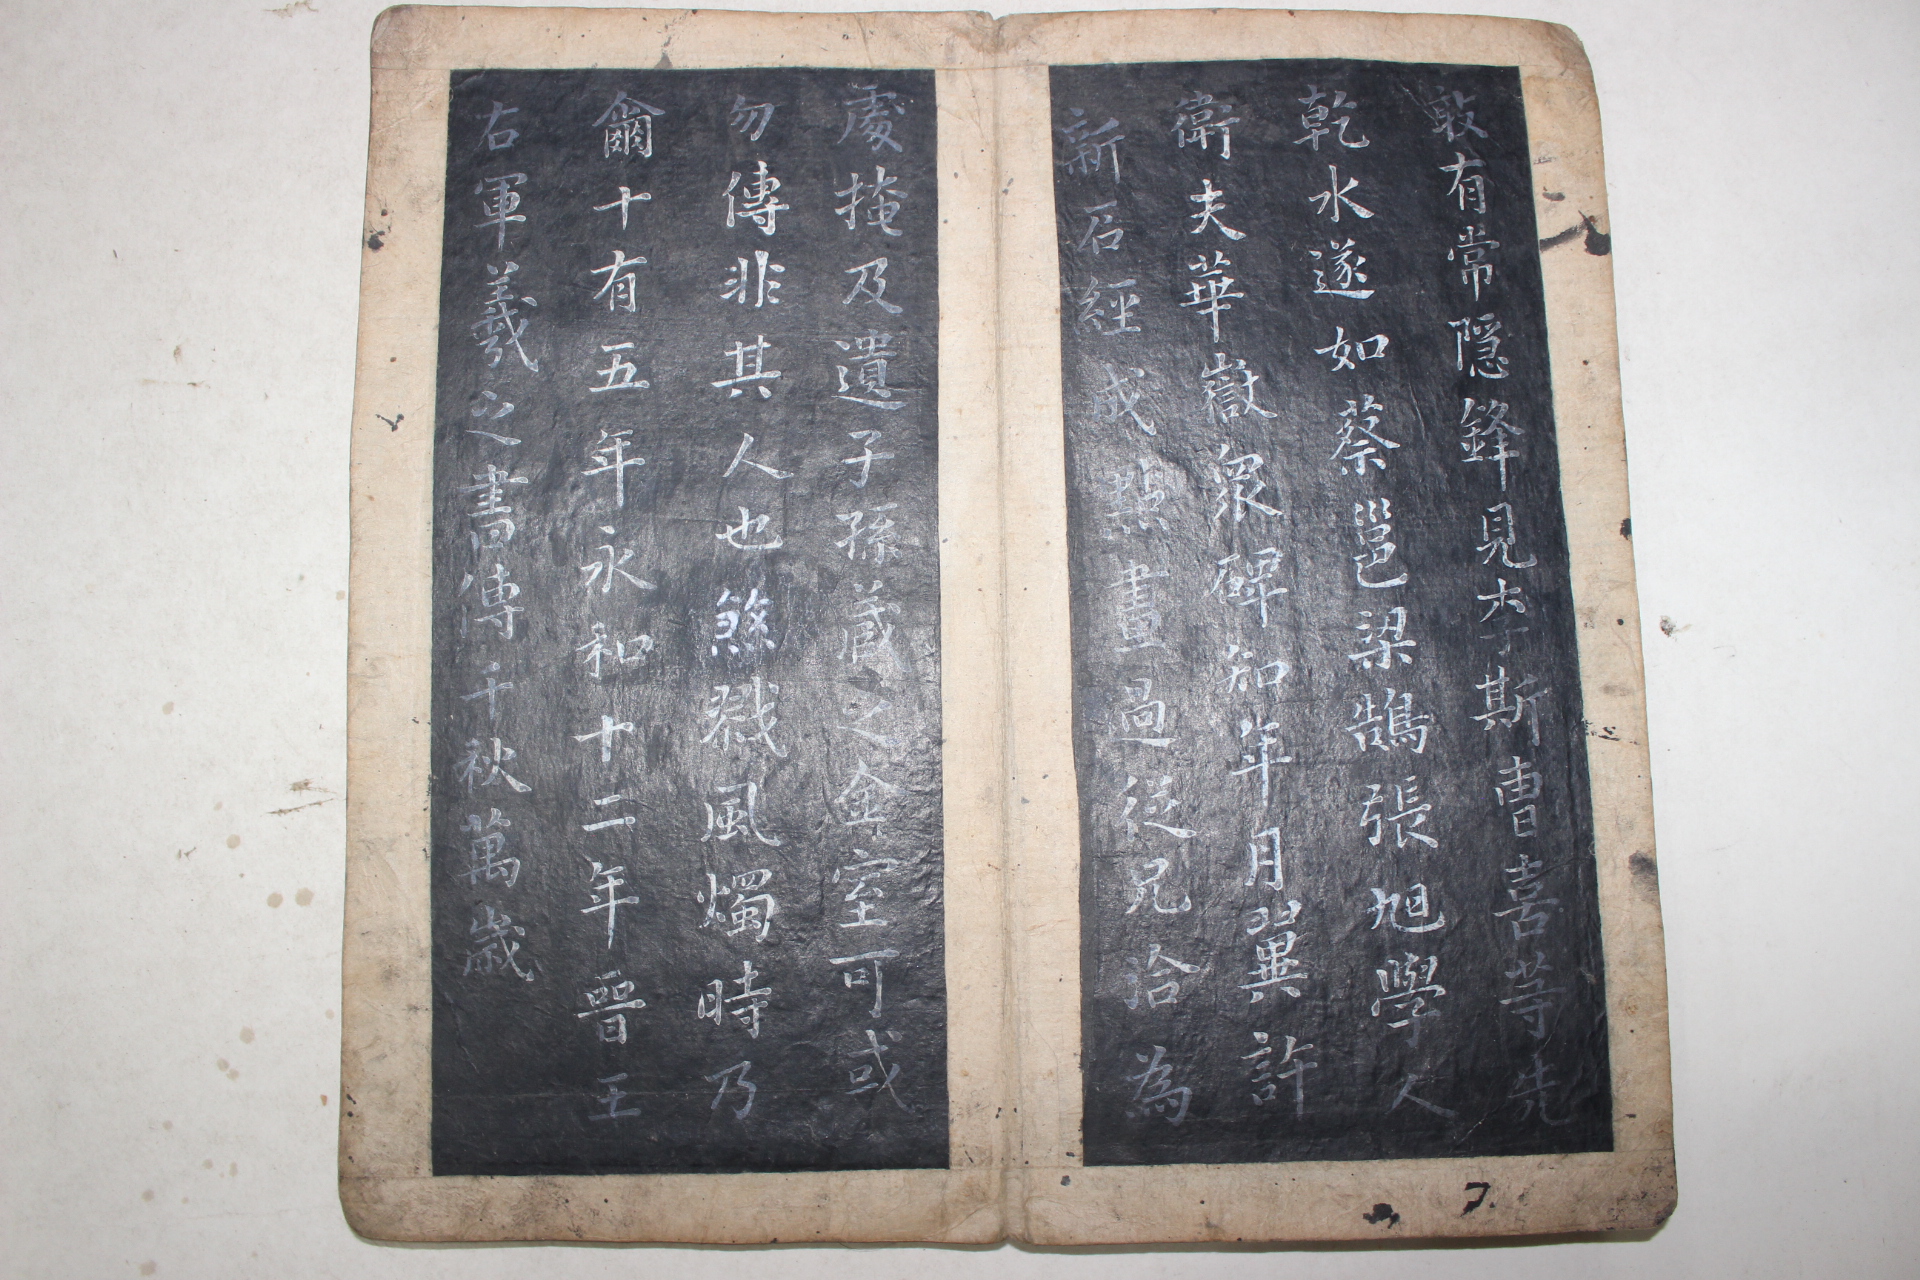 敢有常隱鋒見李斯曹喜等先
乾水遂如蔡邕梁鵠張旭學人
衛夫華嶽衆碑知年月翼許
新石經成點畫過從兄洽為
處掩及遺子孫藏之金室可或
勿傳非其人也煞戮風燭時乃
龠十有五年永和十二年晉王
右軍羲之書傳千秋萬歲